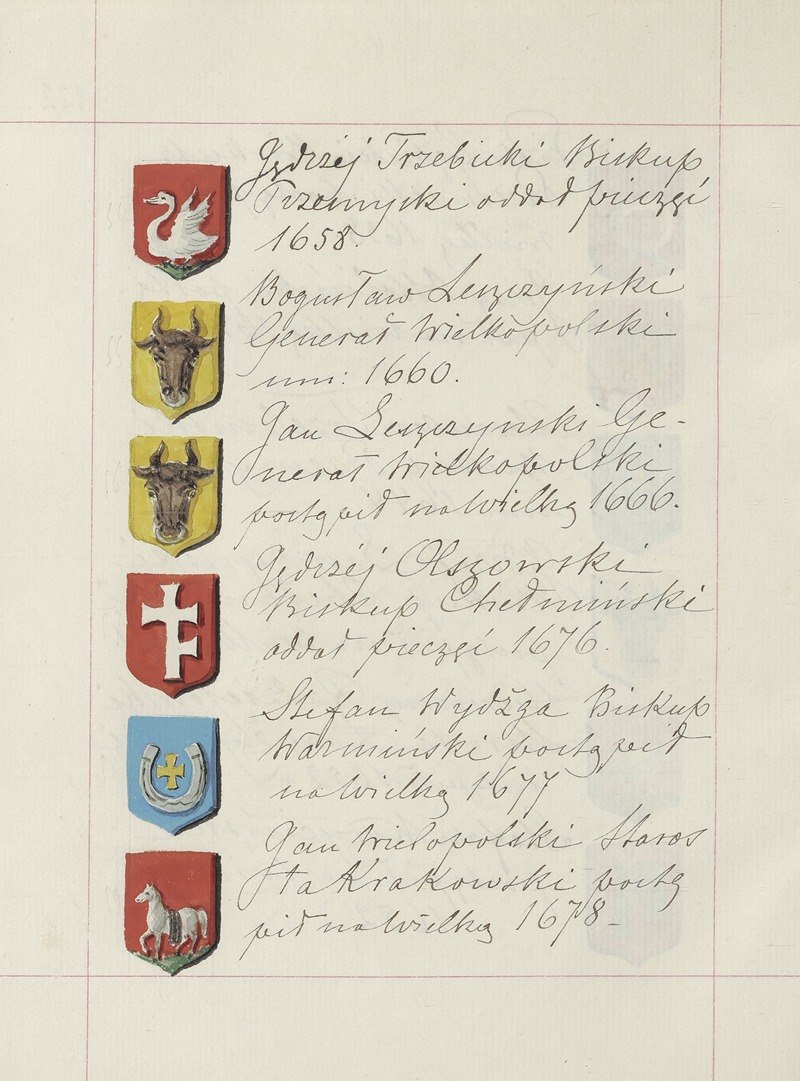 Jędrzéj Trzebicki Biskup
Przemyski oddał pieczęć
1658.
Bogusław Leszczyński
Generał Wielkopolski
um: 1660.
Jan Leszczynski Ge-
nerał Wielkopolski
postąpił na Wielką 1666.
Jędrzéj Olszowski
Biskup Chełmiński
oddał pieczęć 1676.
Stefan Wydżga Biskup
Warmiński postąpił
na Wielką 1677
Jan Wielopolski Staros
ta Krakowski postą
pił na Wielką 1678-